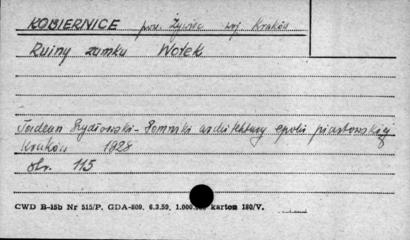 KOBIERNICE pow. Żywiec woj. Kraków
Ruiny zamku Wołek
Szydłowski - Pomniki architektury epoki piastowskiej
Kraków 1928
str. 115
CWD B-15b Nr 515/P. GDA-809. 6.3.59. 1.000.000 karton 180/V.